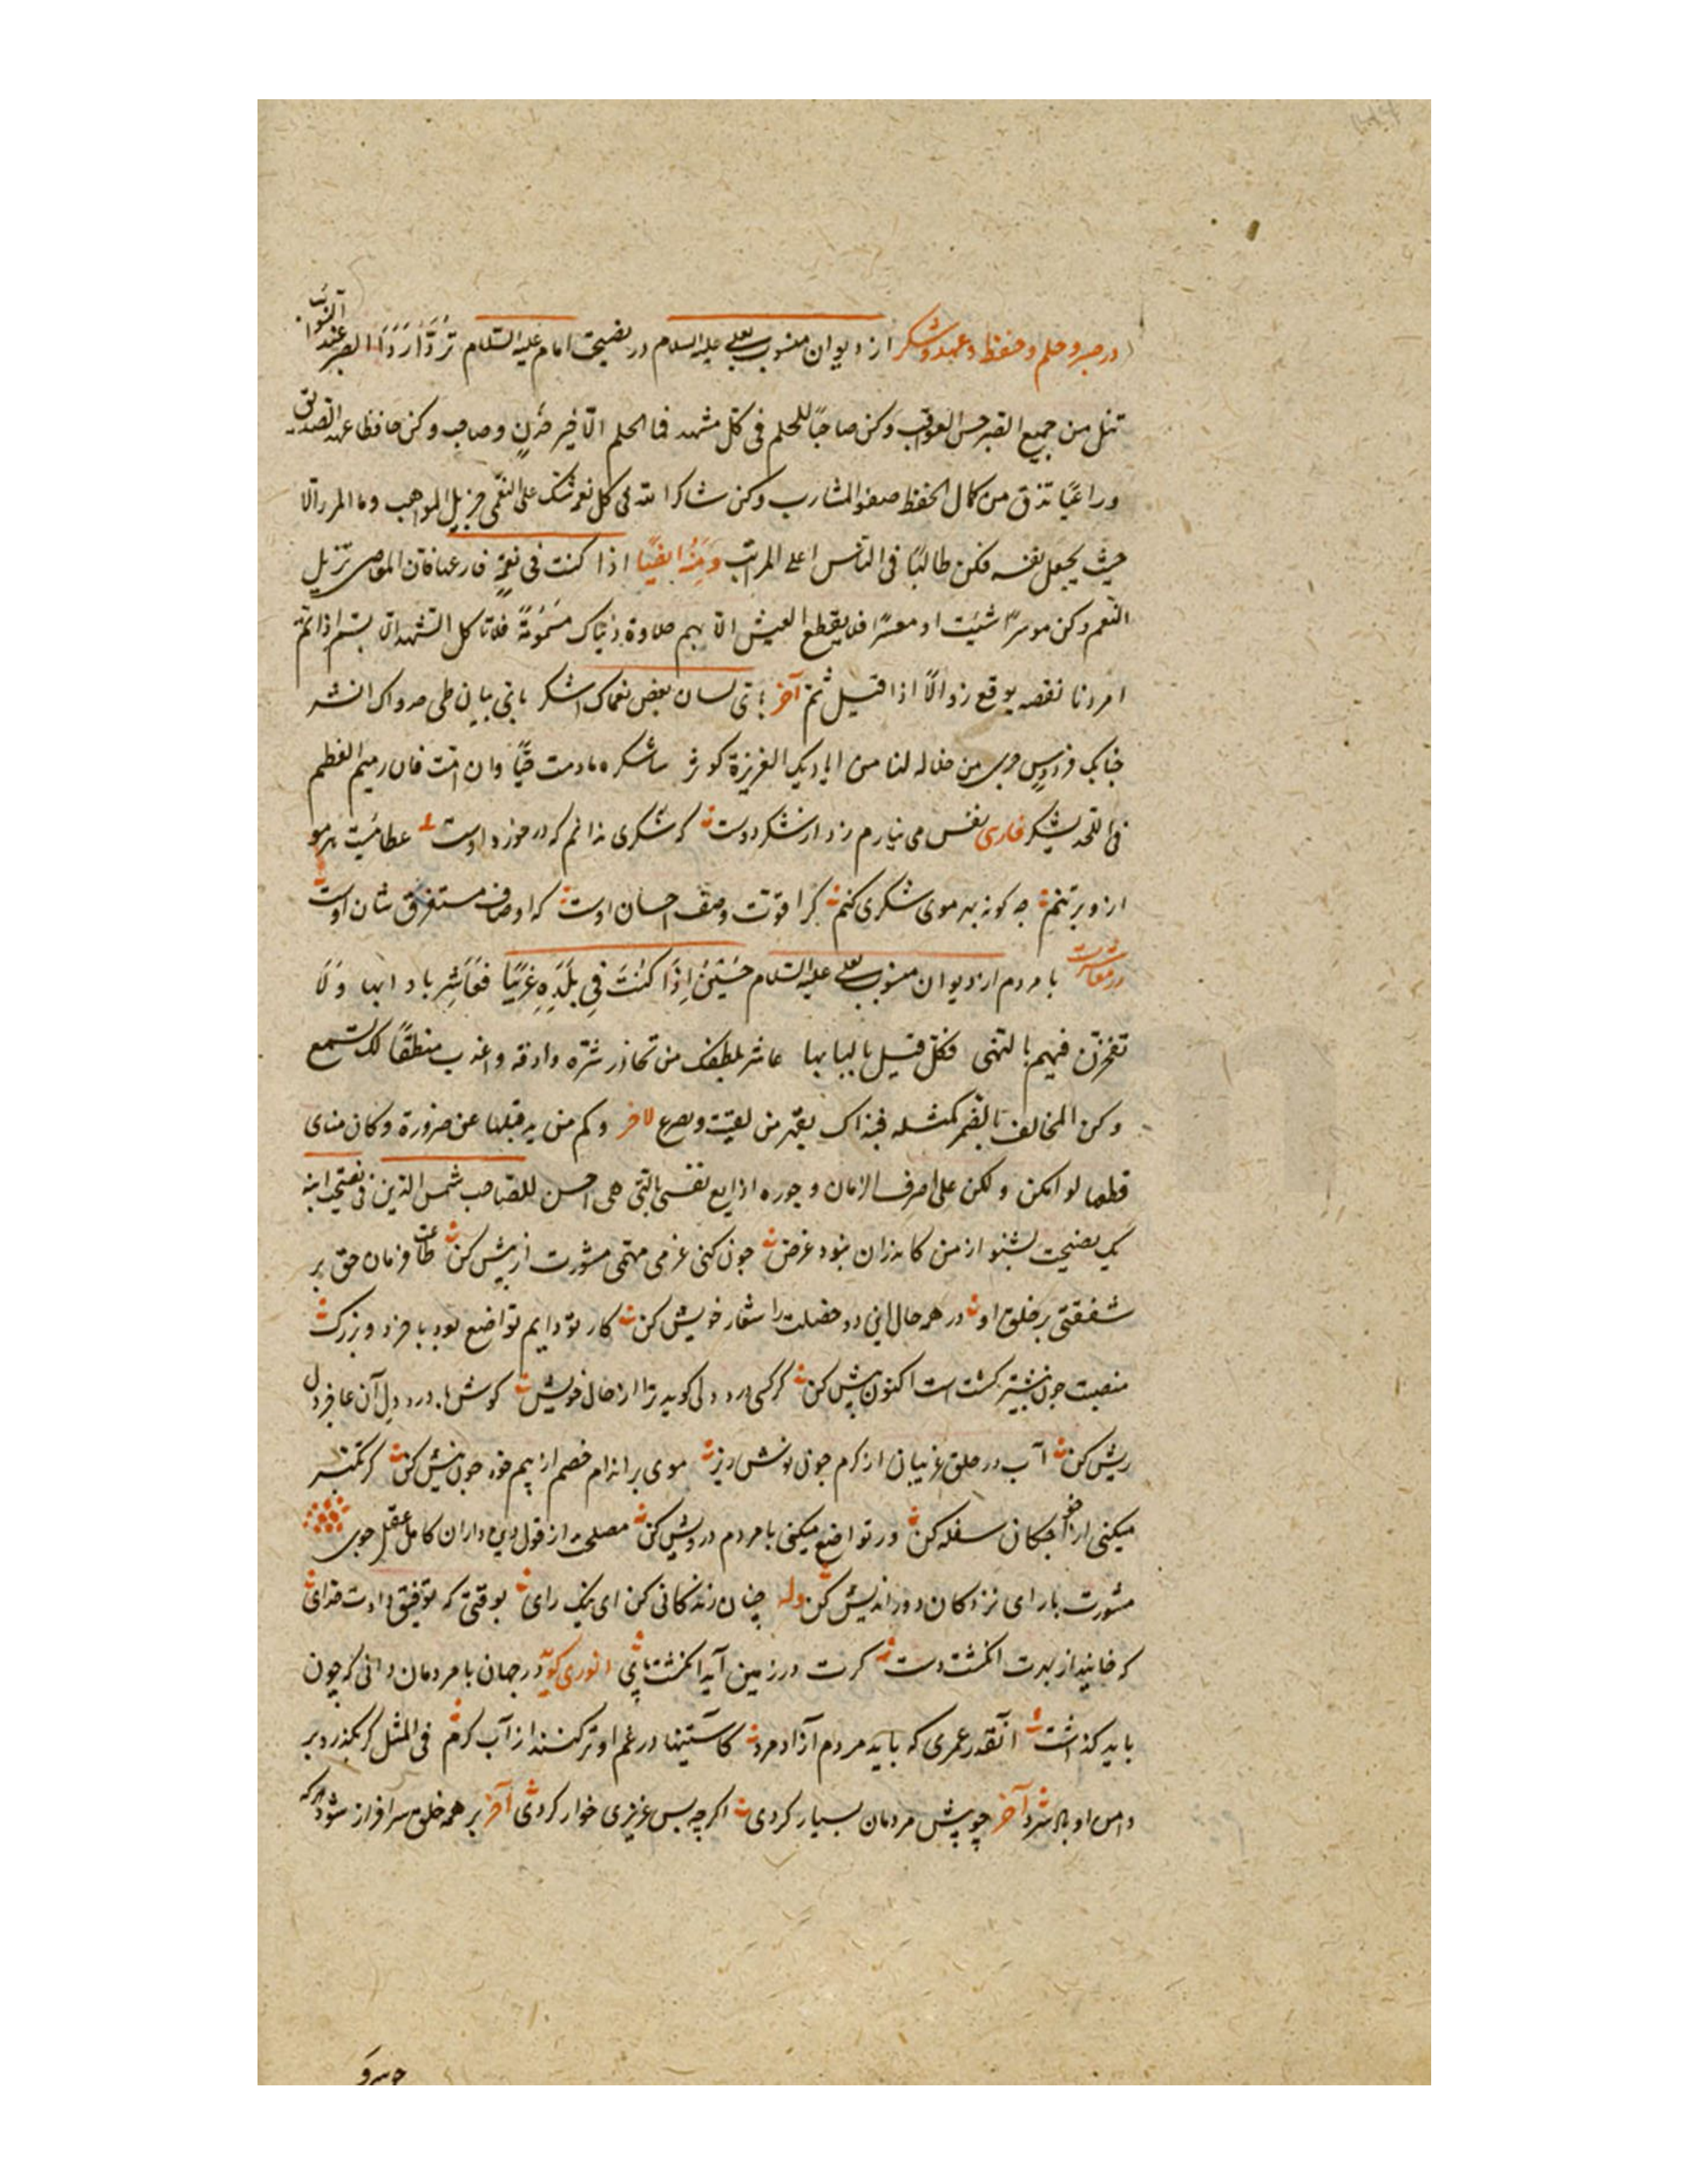 در صبر و حلم و حفظ و عهد و شکر از دیوان منسوب بعلی علیه السلام در نصیحت امام علیه السلام تردّ رداء الصبر عند النوائب
تنل من جمیع الصبر حسن العواقب وکن صاحبًا للحلم فی کل مشهد فما الحلم الّا خیر خدن و صاحب وکن حافظا عهد الصدیق
وراعیًا تذق من کمال الحفظ صفو المشارب وکن شاکرا لله فی کل نعمة یثبک علی النعمی جزیل المواهب وما المرء الّا
حیث یجعل نفسه فکن طالبًا فی الناس اعلی المراتب ومنه ایضًا اذا کنت فی نعمةٍ فارعها فان المعاصی تزیل
النّعم وکن موسرًا شئت او معسرًا فلا یقطع العیش الّا بهم حلاوة دنیاک مسمومةً فلا تاکل الشهد الّا بسم اذا تمّ
امر دنا نقصه توقع زوالًا اذا قیل تمّ آخر بای لسان بعض نعماک اشکر بای بیان طی جدواک انشر
جنابک فردوس جری من خلاله لنا من ایادیک الغزیرة کوثر ساشکره مادمت حیًّا وان امت فان رمیم العظم
فی اللحد یشکر فارسی نفس می نیارم زد از شکر دوست که شکری ندانم که در خورد اوست عطائیست هر مو
ازو بر تنم چه کونه بهر موی شکری کنم کرا قوت وصف احسان اوست که اوصاف مستغرق شان اوست
در معاشرت با مردم از دیوان منسوب بعلی علیه السلام حسین اذا کنت فی بلدة غریبًا فعاشر بادابها ولا
تفخرن فیهم بالنهی فکل قبیل بالبابها عاشر بلطفک من تحاذر شرّه وارفه واعذب منطقًا لک یسمع
وکن المخالف بالضمر کمثله فبذاک یقهر من لقیت ویصرع لاخر وکم من ید قبلتها عن ضرورة وکان منای
قطعها لو امکن ولکن علی صرف الزمان وجوره اذا یع نفسی بالتی هی احسن للصاحب شمس الدین فی نصیحت ابنه
یک نصیحت بشنو از من کاندران نبود غرض چون کنی عزمی مهمی مشورت از پیش کن طاعت فرمان حق بر
شفقتی بر خلق او در همه حال این دو خصلت را شعار خویش کن کار تو دایم تواضع بود با خرد و بزرک
منصبت چون بیشتر کشتست اکنون بیش کن کر کسی درد دلی کوید ترا از حال خویش کوش با درد دل آن عاجز دل
ریش کن آب در حلق غریبان از کرم چون نوش ریز موی بر اندام خصم از بیم خود چون نیش کن کر تکبر
میکنی از خواجکان سفله کن ور تواضع میکنی با مردم درویش کن مصلحت از قول دین داران کامل عقل جوی
مشورت با رای نزدکان دور اندیش کن وله چنان زندکانی کن ای نیک رای بوقتی که توفیق دادت خدای
که خایند از بهرت انکشت دست کرت در زمین آید انکشت پای انوری کوید در جهان با مردمان دانی که چون
باید کذاشت آنقدر عمری که باید مردم آزاد مرد کاستینها در غم او تر کنند از آب کرم فی المثل کر بکذرد بر
دامن او باد سرد آخر چو پیش مردمان بسیار کردی اکر چه بس عزیزی خوار کردی آخر بر همه خلق سرافراز شود هر که
چو سرو